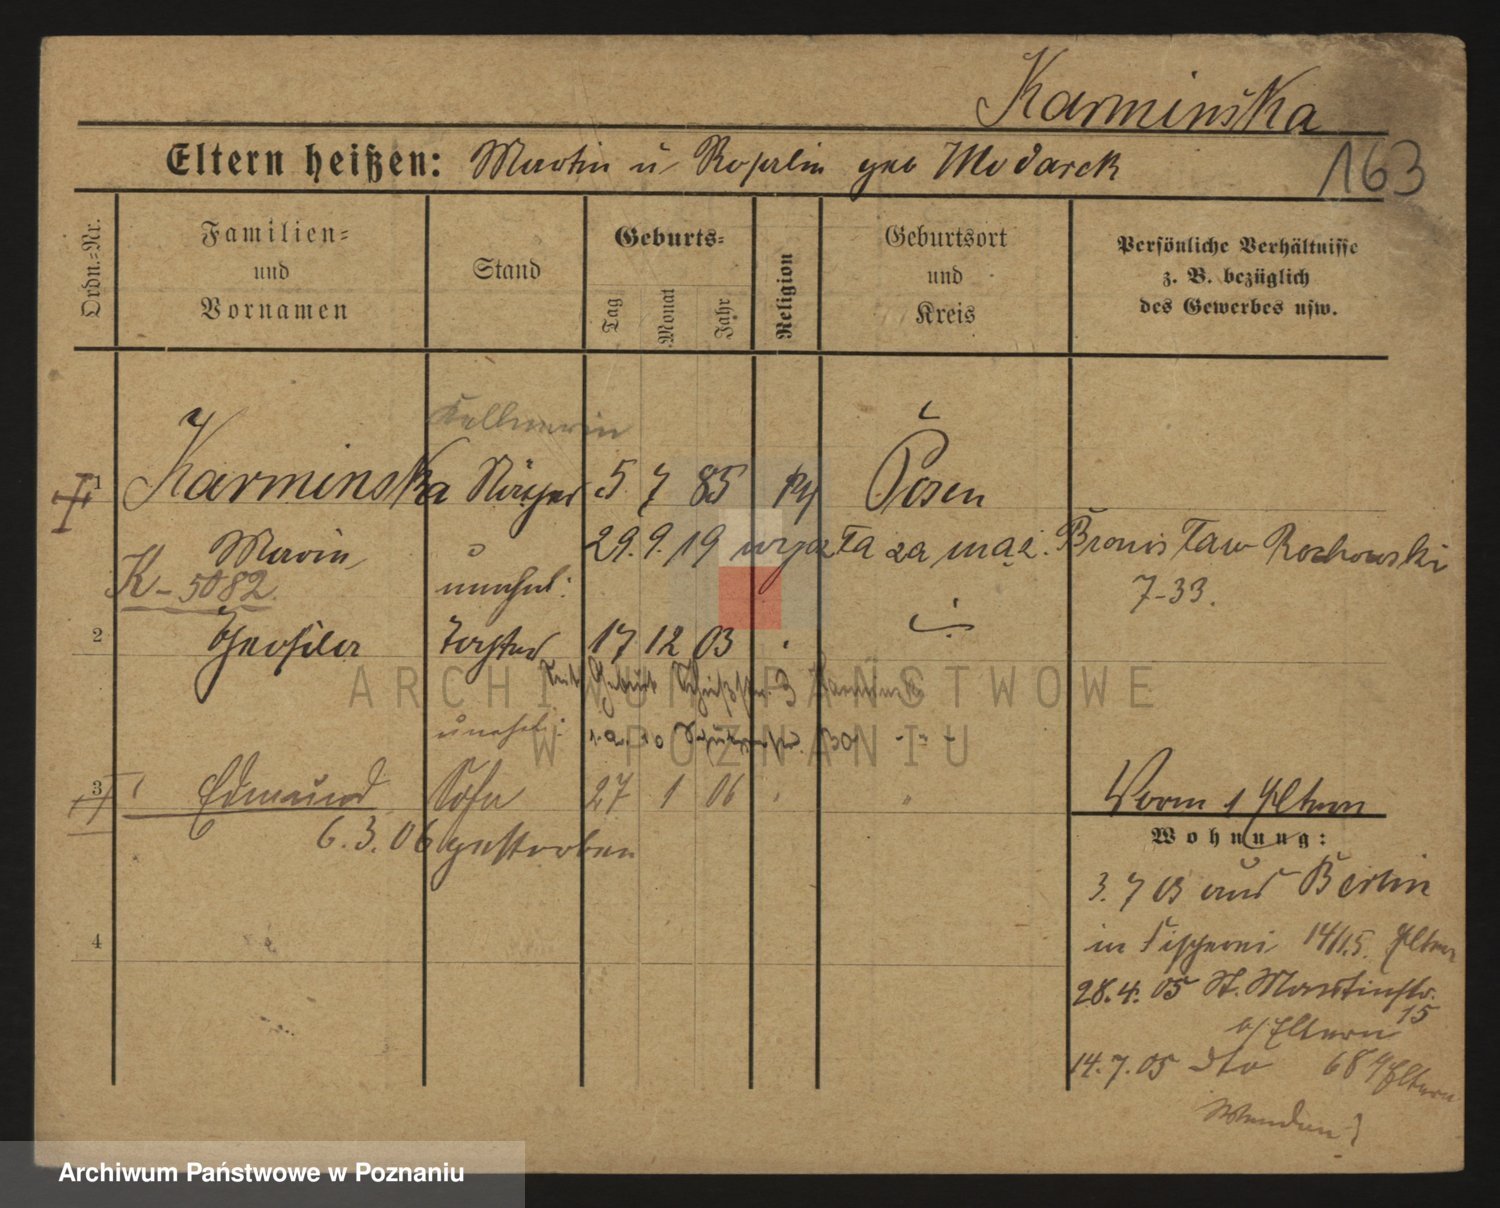 Karminska
163
Eltern heißen: Martin u Rosalin geb Wlodarck
Ordn.-Nr.
Familien-
und
Vornamen
Stand
Geburts-
Tag
Monat
Jahr
Religion
Geburtsort
und
Kreis
Persönliche Verhältnisse
z. B. bezüglich
des Gewerbes usw.
Kellnerin
1 Karminska 5 7 85 Posen
29. 9. 19 wyszła za mąż. Bronisław Rochowski
K-5082
7-33.
unehel:
2 Tochter 17 12 03
unehel:
3 Edmund Sohn 27 1 06 "
6.3.06 gestorben
Vorm 1 Eltern
Wohnung:
3. 7 03 aus Berlin
in Fischerei 14/15. Eltern
28. 4. 05 St. Martinstr.
15
b/ Eltern
14. 7. 05 dto 68 Eltern
Wenden!
4
ARCHIWUM PAŃSTWOWE
W POZNANIU
Archiwum Państwowe w Poznaniu